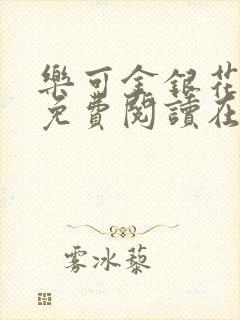 樂可金銀花
免費閱讀在
雾冰藜